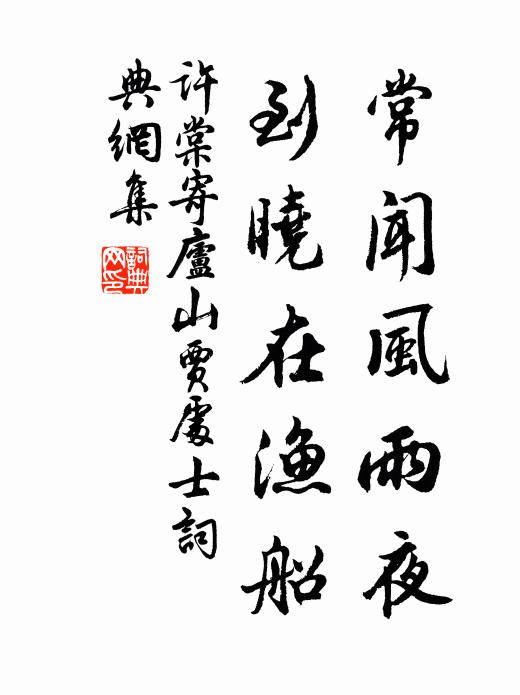 常聞風雨夜
到曉在漁船
許棠寄廬山賈處士詞
典網集
詞典
网印